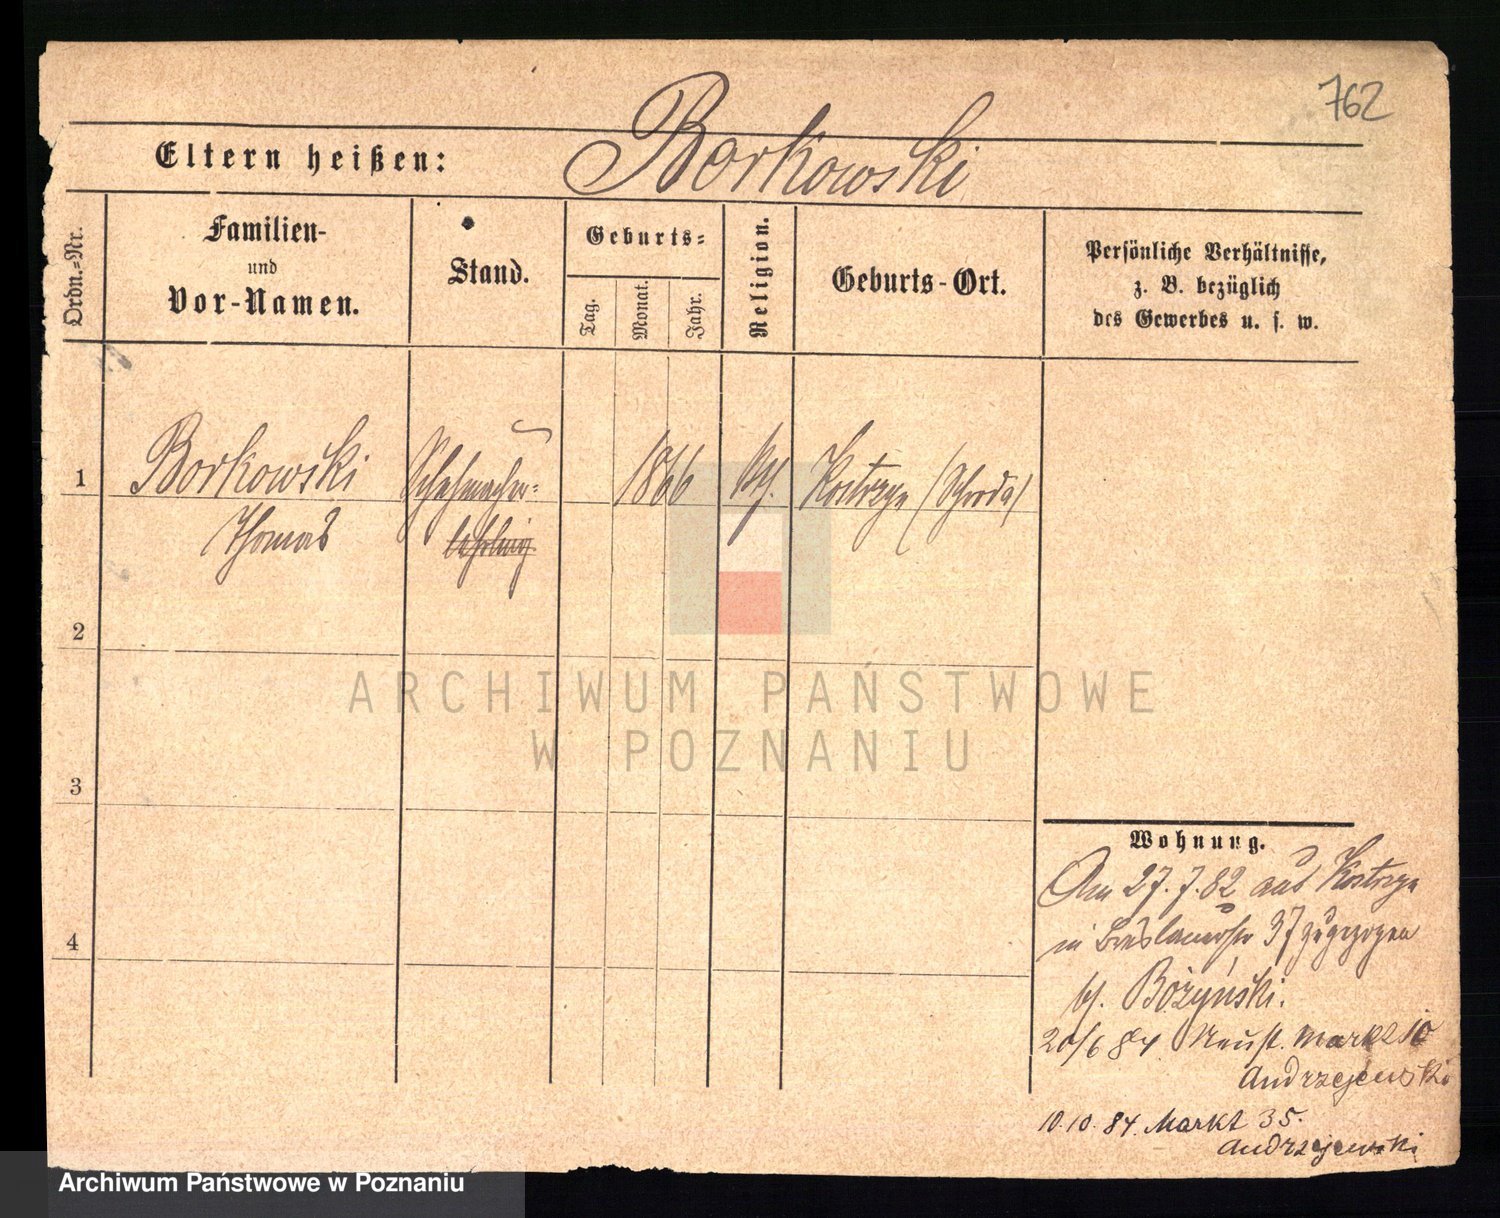 762
Eltern heißen: Borkowski
Ordn.-Nr.
Familien-
und
Vor-Namen.
Stand.
Geburts-
Tag.
Monat.
Jahr.
Religion.
Geburts-Ort.
Persönliche Verhältnisse,
z. B. bezüglich
des Gewerbes u. s. w.
1 Borkowski Schuhmacher- 1866 kth. Kostrzyn (Schroda)
Thomas lehrling
2
3
4
ARCHIWUM PAŃSTWOWE
W POZNANIU
Wohnung.
Am 27.7.82 aus Kostrzyn
in Breslauerstr 37 zugezogen
bei Bożyński.
20/6 84. Neust. Markt 10
Andrzejewski
10.10.84. Markt 35.
Andrzejewski
Archiwum Państwowe w Poznaniu